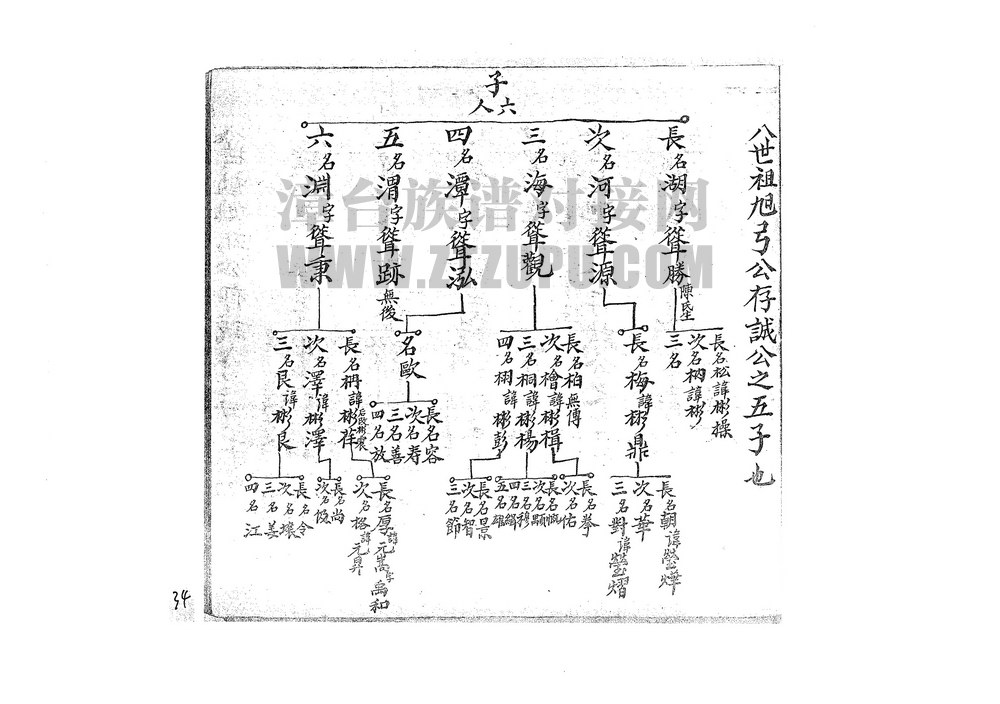 八世祖旭弓公存誠公之五子也
子
六人
長名湖字聳勝
陳氏
次名河字聳源
三名海字聳觀
四名潭字聳泓
五名渭字聳跡無後
六名淵字聳秉
長名松諱彬操
次名柄諱彬
三名
長名梅諱彬鼎
長名柏無傳
次名檜諱彬楫
三名桐諱彬楊
四名栩諱彬彭
名歐
長名枏諱彬
次名澤諱彬澤
三名艮諱彬艮
長名容
次名寿
三名善
四名放
長名朝諱瑩燁
次名華
三名對諱瑩熠
長名拳
次名佑
長名
次名顯
三名穆
四名緝
五名
長名景
次名智
三名節
長名厚諱元嵩字禹和
次名格諱元昇
長名尚
次名俊
長名令
次名壤
三名姜
四名江
34
漳台族谱对接网
WWW.ZTZUPU.COM